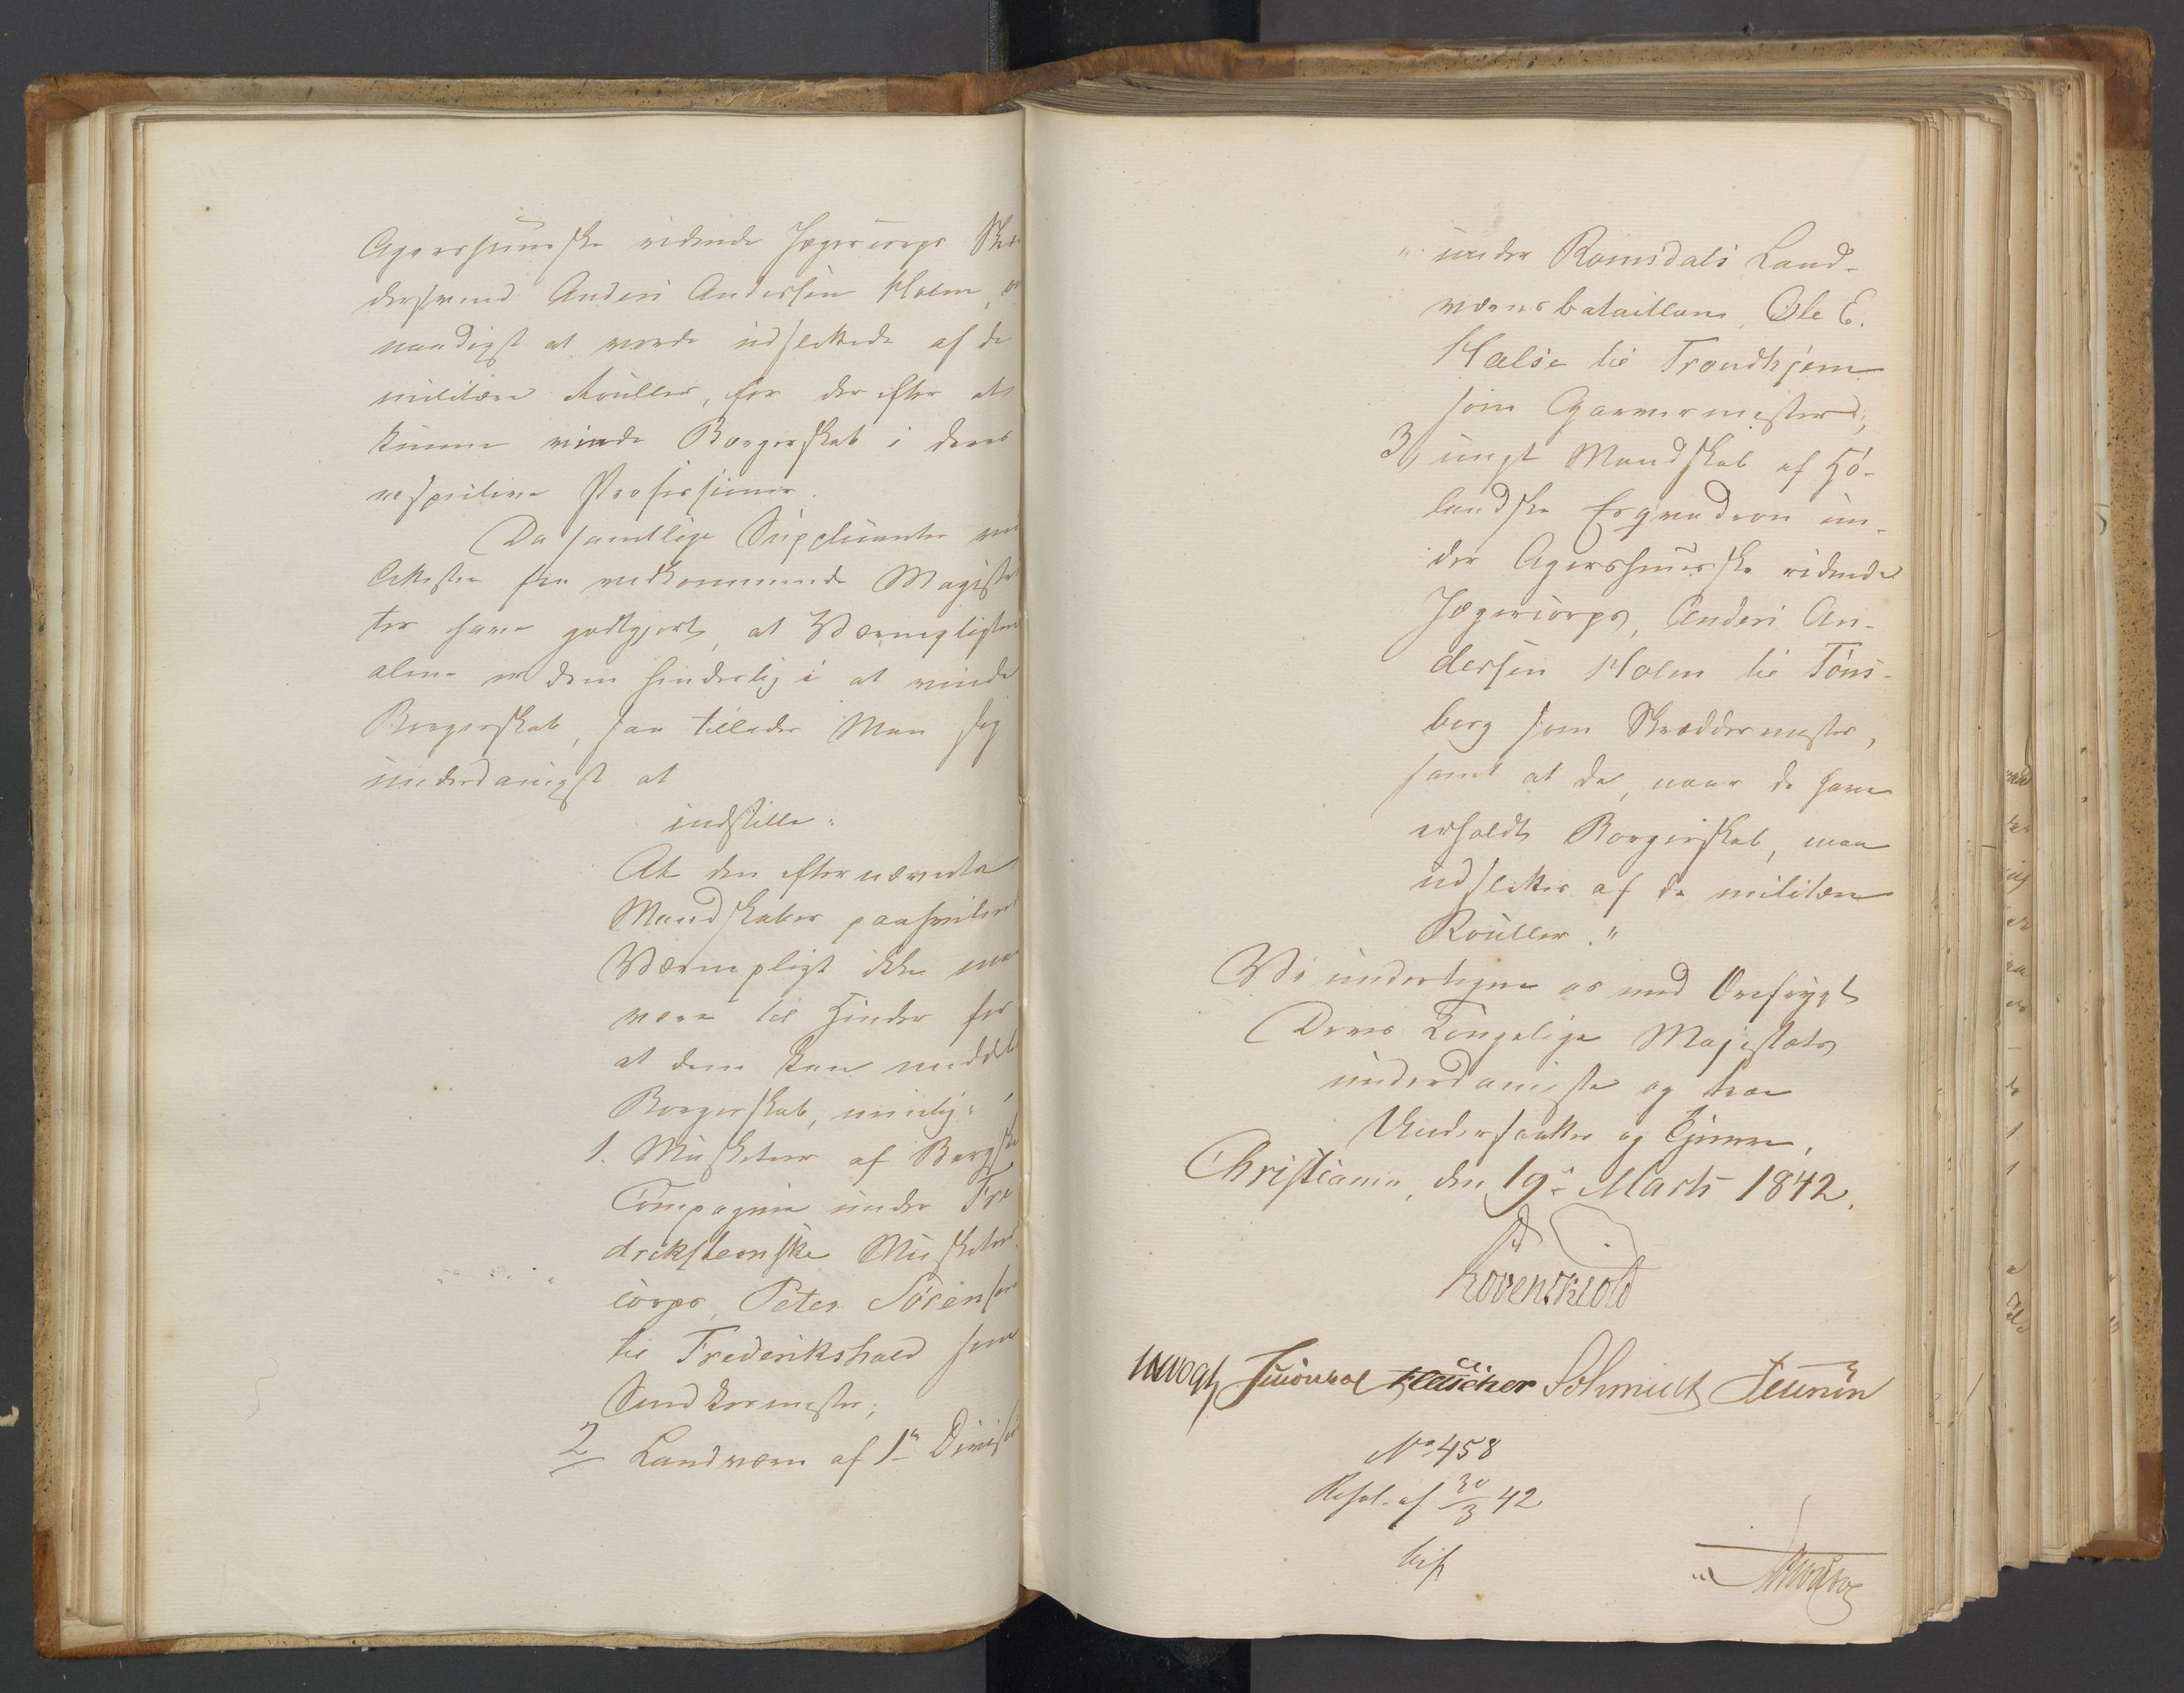 Agershuusske ridende Jægercorps Skræ
dersvend Anders Anderssen Holm, om
naadigst at vorde udslettede af de
militære Rouller, for derefter at
kunne vinde Borgerskab i deres
respective Professioner.
Da samtlige Supplicanter ved
Attester fra vedkommende Magistra
ter have godtgjort, at Værnepligten
alene er dem hinderlig i at vinde
Borgerskab, saa tillader Man sig
underdanigst at
indstille:
At den efternævnte
Mandskaber paahvilende
Værnepligt ikke maa
være til Hinder for
at dem kan meddeles
Borgerskab, nemlig:
1. Musketeer af Bergske
Compagnie under Fre
driksteenske Musketeer
corps, Peter Sörensen
til Frederikshald som
Snedkermester;
2 Landværn af 1ste Division
" under Romsdals Land-
værnsbataillon, Ole E.
Halse til Trondhjem
som Garvermester;
3, ungt Mandskab af Hö-
landske Esqvadron un-
der Agershuusske ridende
Jægercorps, Anders An-
derssen Holm til Töns-
berg som Skræddermester,
samt at de, naar de have
erholdt Borgerskab, maa
udslettes af de militære
Rouller."
Vi undertegne os med Ærefrygt
Deres Kongelige Majestæts
underdanigste og troe
Undersaatter og Tjenere,
Christiania, den 19de Marts 1842.
Lövenskiold
Vogt Fleischer Schmidt
No 458
Resol. af 30/3 42
bif